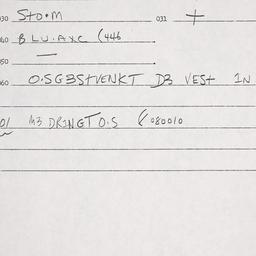 030 STO•M 031 +
040 BLU.AXC (446
050 —
060 O.SG3STVENKT D3 VEST IN
01 M3 DRINGT O.S (080010